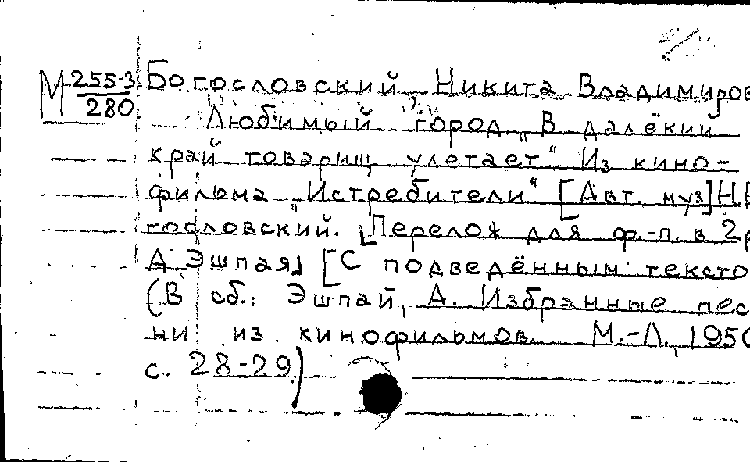 М 255-3/280 Богословский Никита Владимиров
Любимый город „В далёкий
край товарищ улетает“ Из кино-
фильма „Истребители“ [Авт. муз] Н Б
гословский. [Перелож для ф.-п. в 2 р
А Эшпая] [С подведённым тексто
(В сб.: Эшпай, А. Избранные пес-
ни из кинофильмов М.-Л, 1950
с. 28-29)